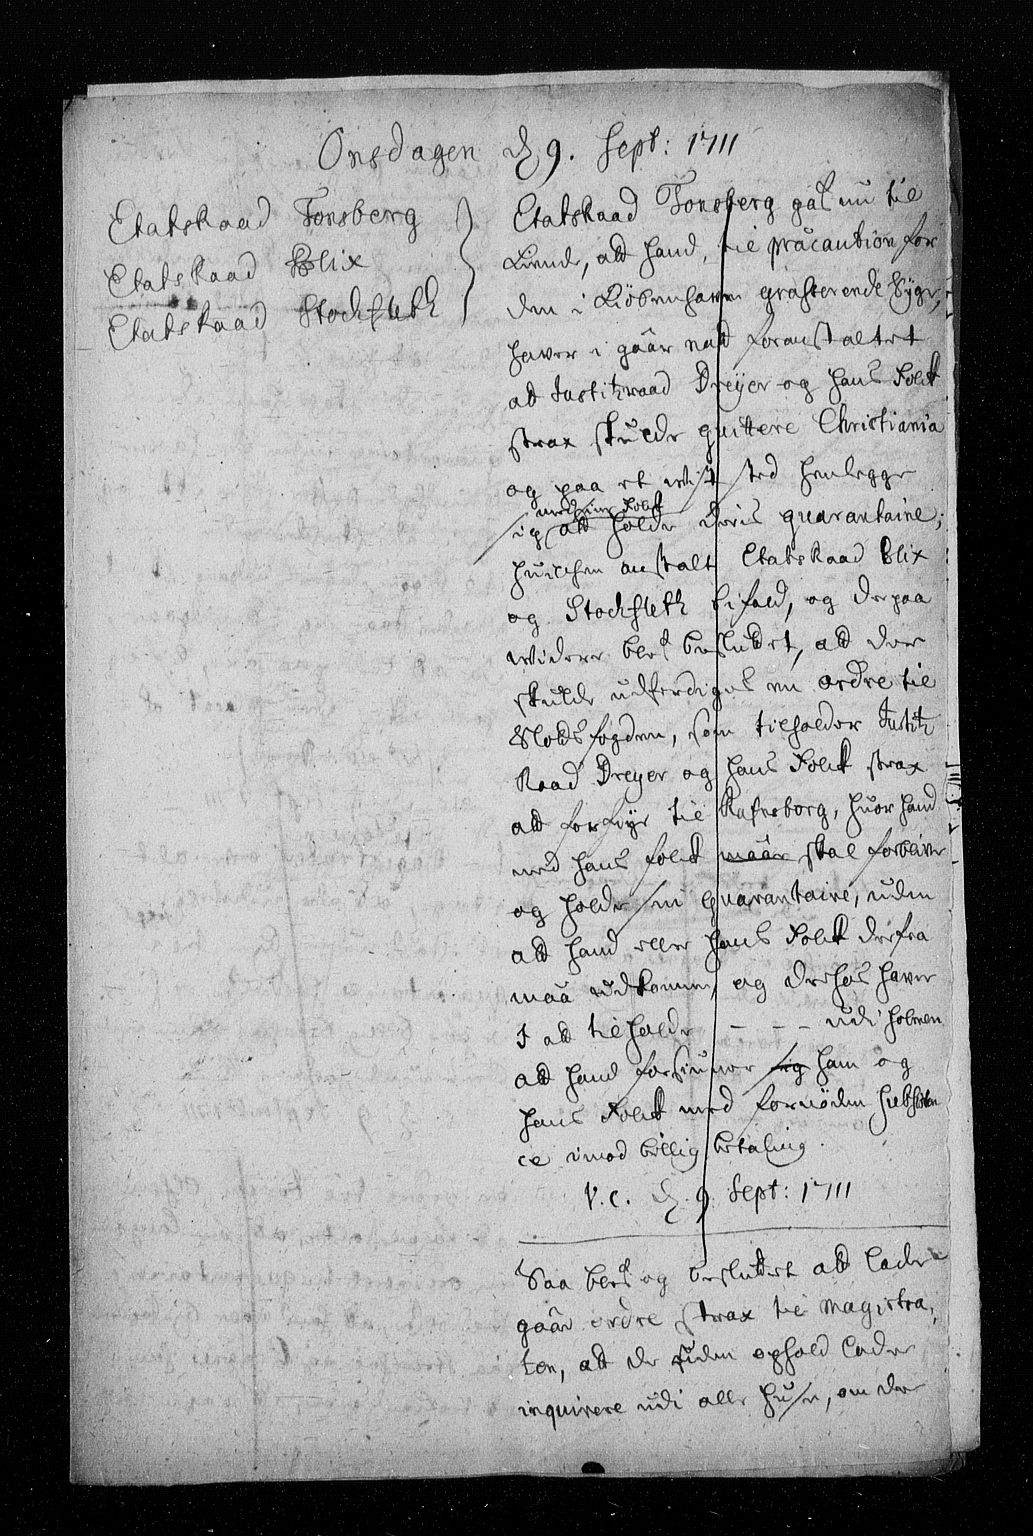 Onsdagen d 9. Sept: 1711
Etatsraad Tonsberg
Etatsraad Blix
Etatsraad Stockfleth
Etatsraad Tonsberg gaf nu til
kiende, att hand, til præcaution for
den i Kiøbenhavn grasserende Syge,
hafver i gaar natt foranstaltet
att Justitzraad Dreyer og hans Folck
strax skulde qvittere Christiania
og paa et vist sted henlegge
med sine Folck
sig att holde deris quarantaine;
huilchen anstalt Etatsraad Blix
og Stockfleth bifald, og derpaa
widere blef besluttet, att der
skulde udferdiges en ordre til
Slotsfogden, som tilholder Justitz
Raad Dreyer og hans Folck strax
att forføye til Ráfnsborg, huor hand
med hans folck maae skal forblifve
og holde sin quarantaine, uden
att hand eller hans Folck derfra
maa udkomme, og derhos hafver
I att tilholde - - - udi holmen
att hand forsiuner sig ham og
hans Folck med fornøden
ce imod billig betaling.
V. C. d. 9 Sept: 1711
Saa blef og besluttet att lade
gaae ordre strax til Magistra,
ten, att de uden ophold lader
inquirere udi alle huse, om der